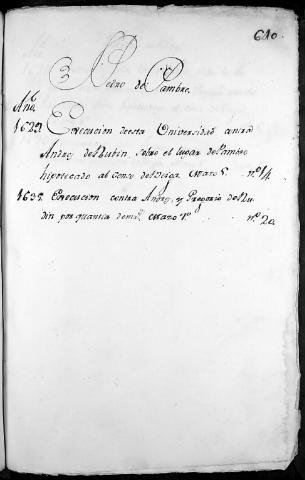 610.
Pedro de Pambre.
Año.
1629. Execucion de esta Universidad contra
Andres de Rubin, sobre el lugar de Pambre
hipotecado al Mazo 1º nº 14.
1635. Execucion contra Andrs. y Gregorio de Ru-
bin por quantia de mrs. Mazo 1º nº 20.